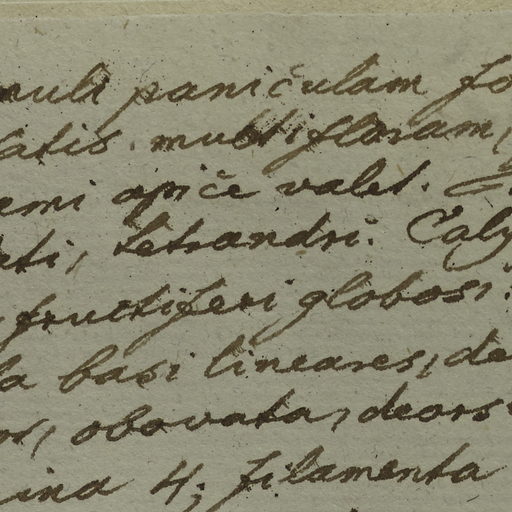 muli paniculam fo
latis multifloram,
emi apice valet.
ti, tetrandri. Caly
fructiferi globosi
la basi lineares, de
s, obovata, deors
ina 4; filamenta